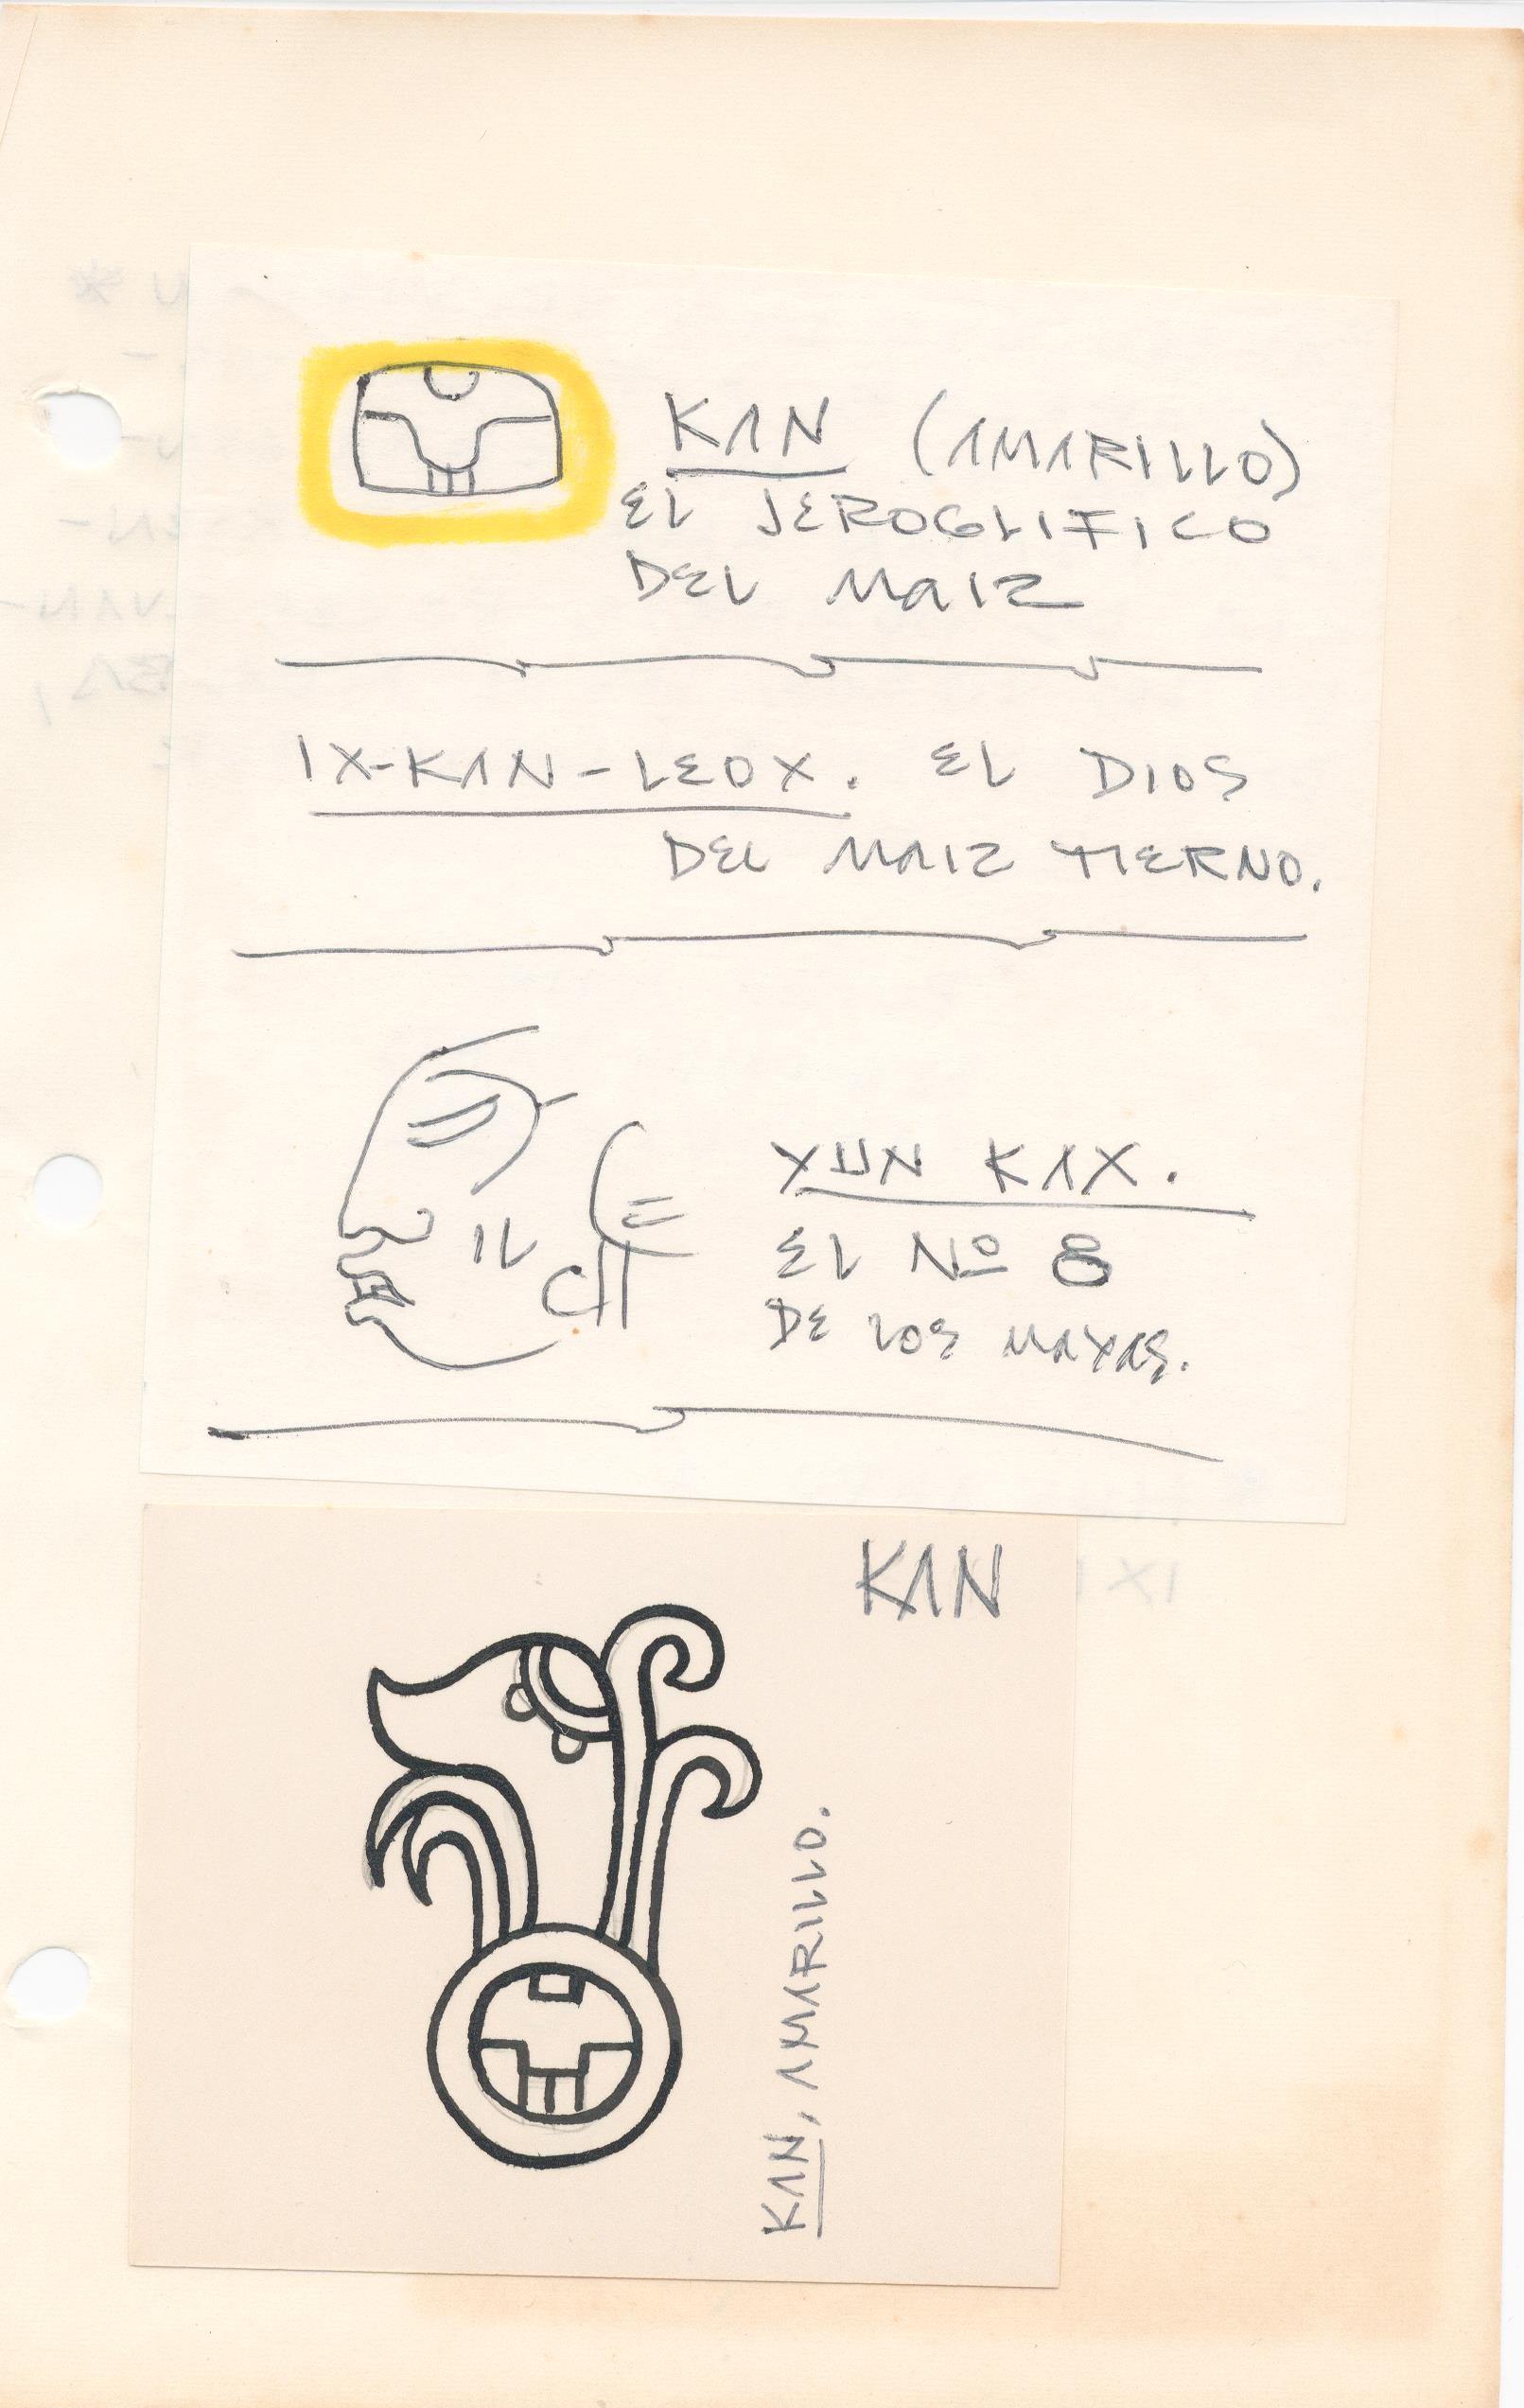 KAN (AMARILLO)
EL JEROGLIFICO
DEL MAIZ
IX-KAN-LEOX. EL DIOS
DEL MAIZ TIERNO.
YUN KAX.
EL Nº 8
DE LOS MAYAS.
KAN
KAN, AMARILLO.